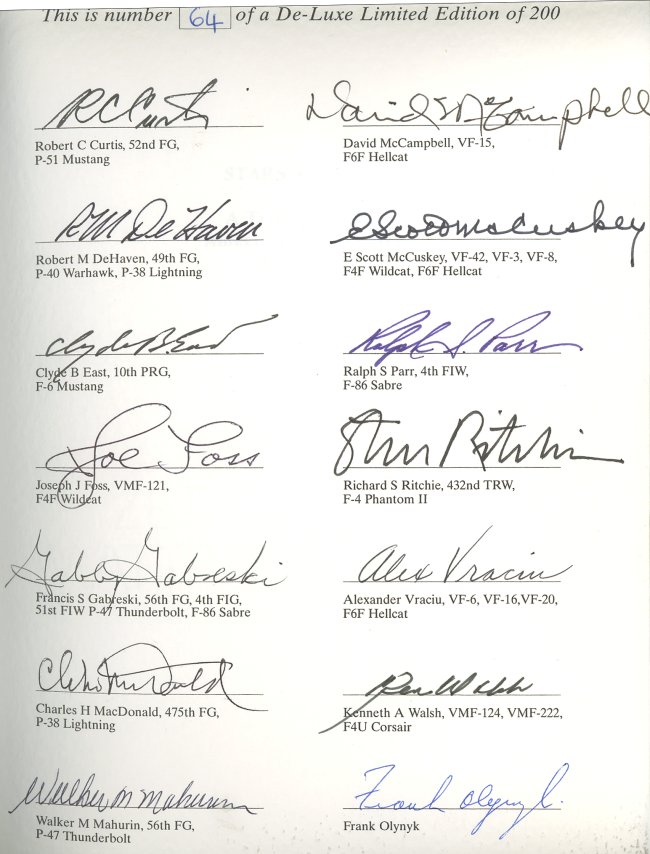 This is number 64 of a De-Luxe Limited Edition of 200
R C Curtis
Robert C Curtis, 52nd FG,
P-51 Mustang
R M DeHaven
Robert M DeHaven, 49th FG,
P-40 Warhawk, P-38 Lightning
Clyde B. East
Clyde B East, 10th PRG,
F-6 Mustang
Joe Foss
Joseph J Foss, VMF-121,
F4F Wildcat
Gabby Gabreski
Francis S Gabreski, 56th FG, 4th FIG,
51st FIW P-47 Thunderbolt, F-86 Sabre
Chas MacDonald
Charles H MacDonald, 475th FG,
P-38 Lightning
Walker M Mahurin
Walker M Mahurin, 56th FG,
P-47 Thunderbolt
David McCampbell
David McCampbell, VF-15,
F6F Hellcat
E Scott McCuskey
E Scott McCuskey, VF-42, VF-3, VF-8,
F4F Wildcat, F6F Hellcat
Ralph S. Parr
Ralph S Parr, 4th FIW,
F-86 Sabre
Steve Ritchie
Richard S Ritchie, 432nd TRW,
F-4 Phantom II
Alex Vraciu
Alexander Vraciu, VF-6, VF-16,VF-20,
F6F Hellcat
Ken Walsh
Kenneth A Walsh, VMF-124, VMF-222,
F4U Corsair
Frank Olynyk.
Frank Olynyk